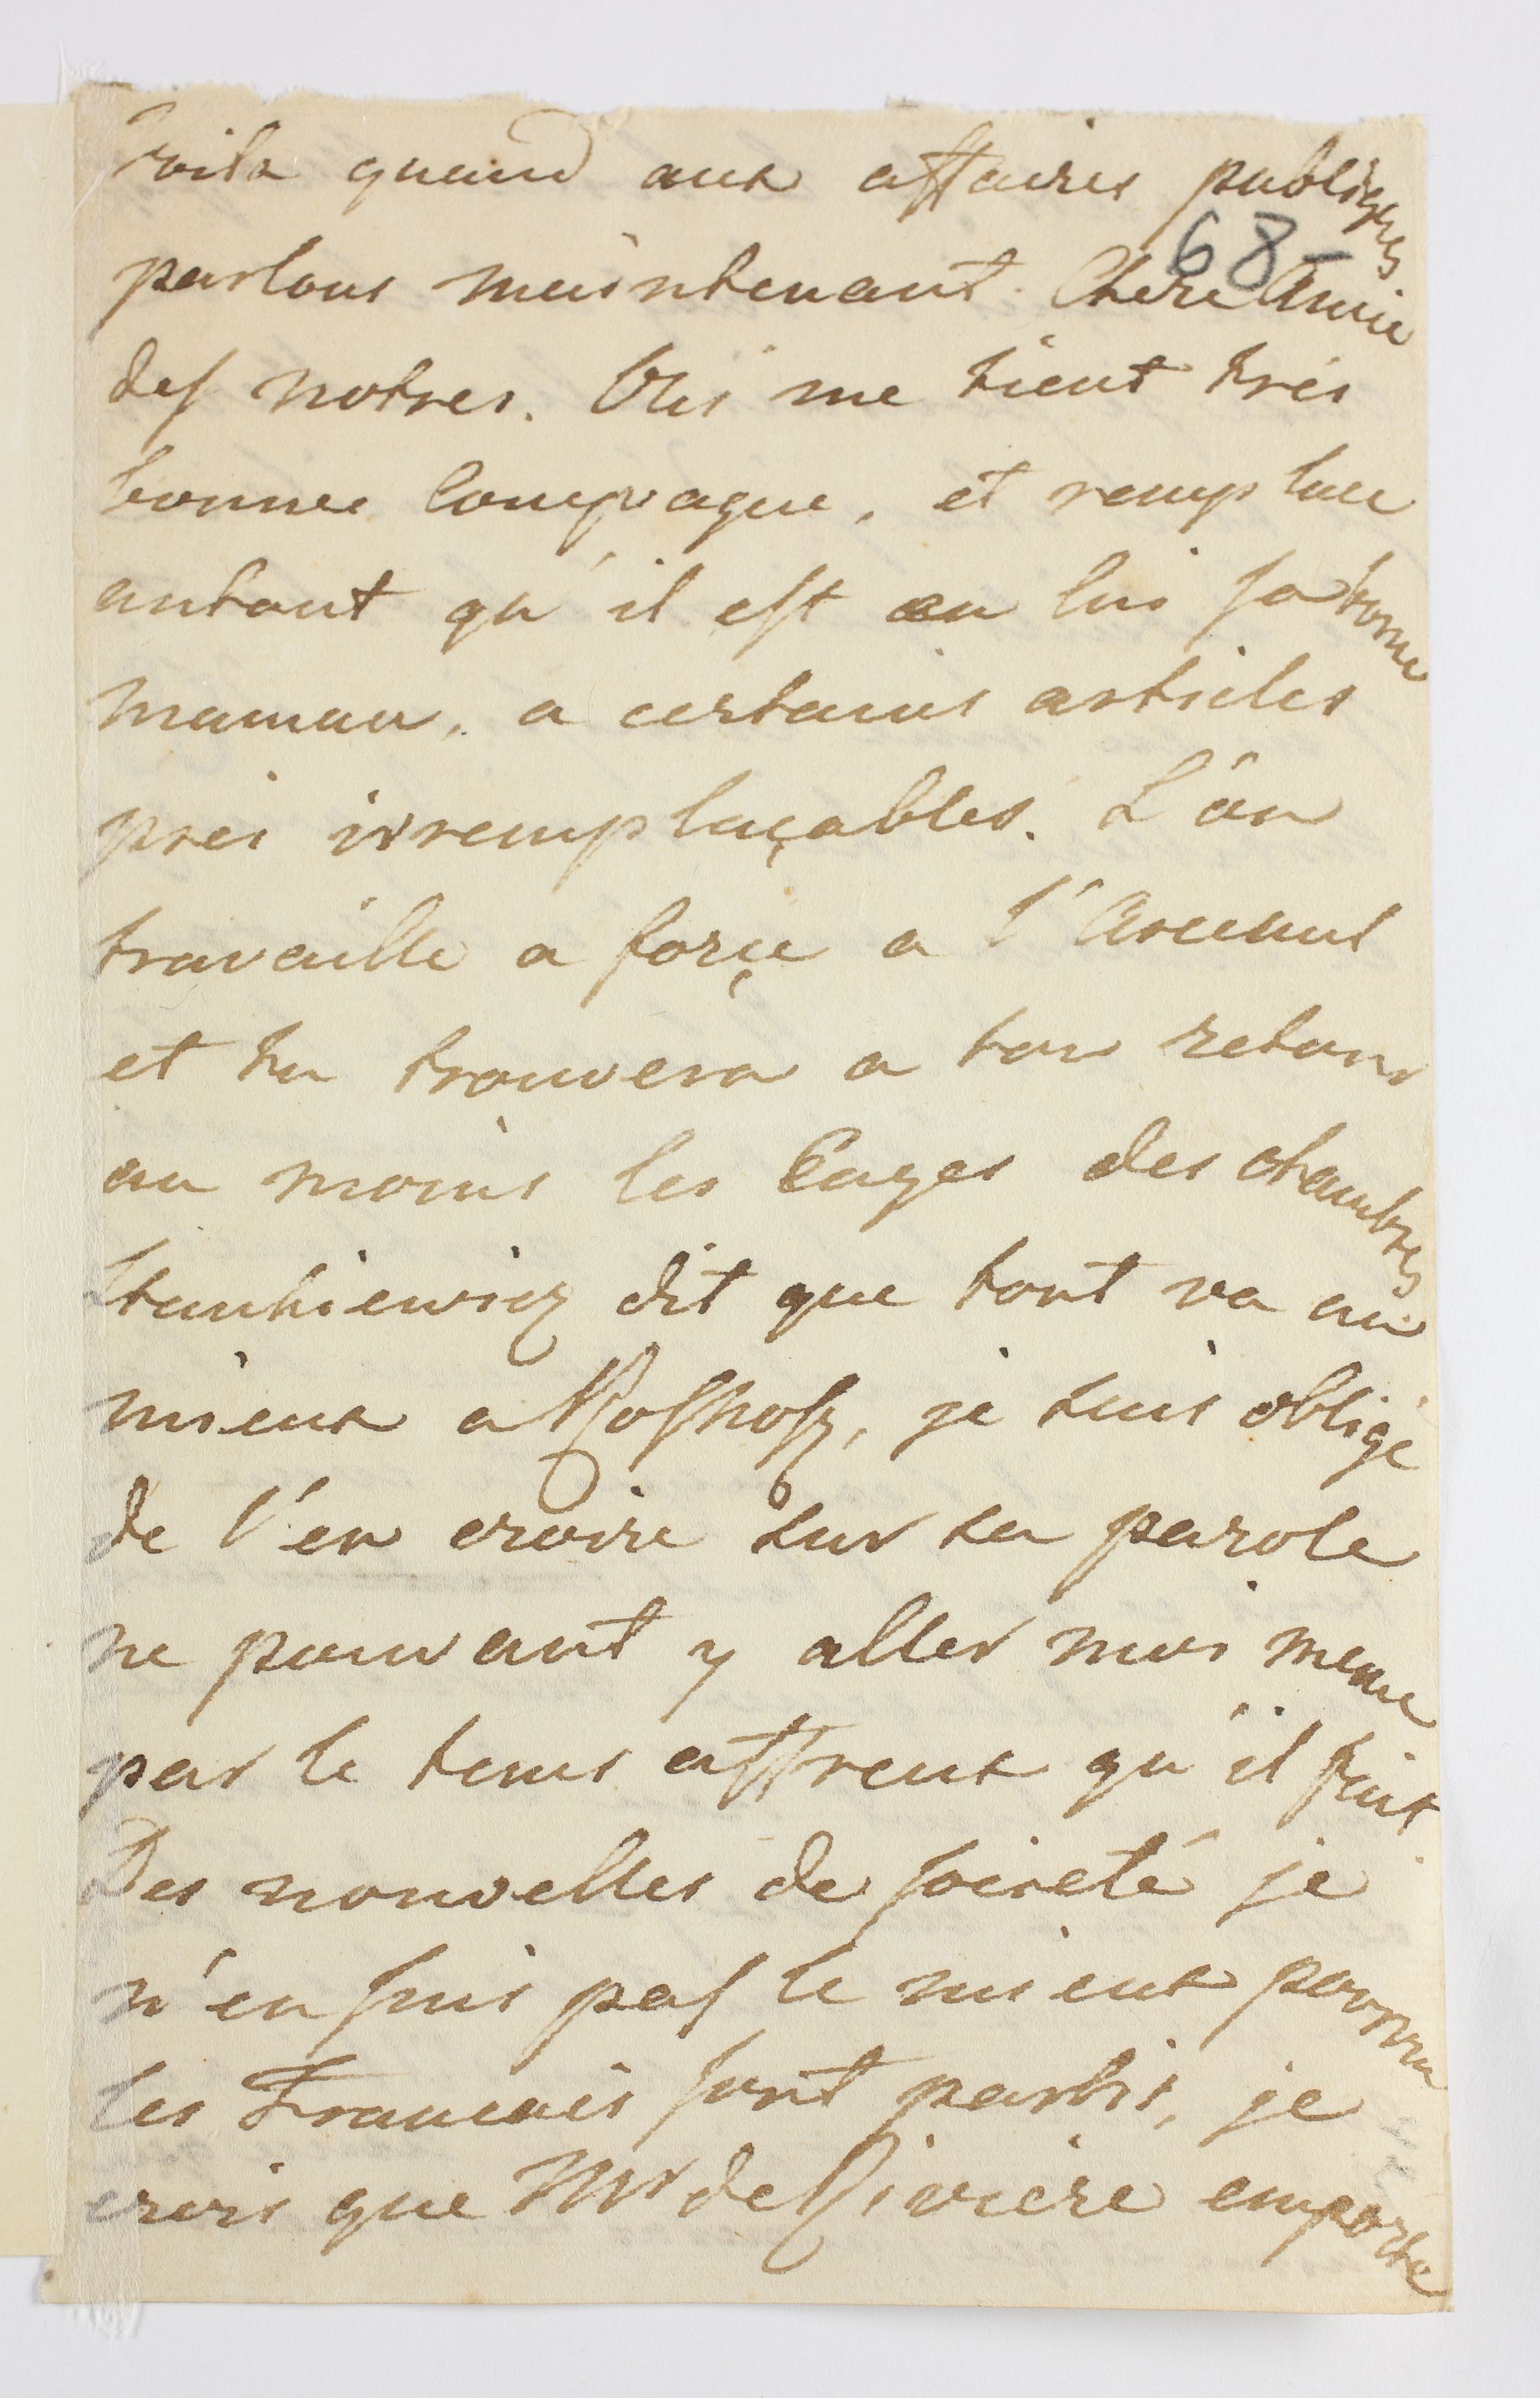 voila quand aux affaires publiques
68-
parlons maintenant Chere Amie
des notres. Olis me tient très
bonne Compagne, et remplace
autant qu'il est en lui sa bonne
maman, a certains articles
pres irremplaçables. L'on
travaille a forçe a l'Arcenal
et tu trouvera a ton retour
au moins les Cages des chambres
Stankiewicz dit que tout va au
mieux a, je suis obligé
de l'en croire sur sa parole
ne pouvant y aller moi meme
par le tems affreux qu'il fait
Des nouvelles de société je
n'en suis pas le mieux pourvu
les Francais sont partis, je
crois que Mr de Riviere emporte